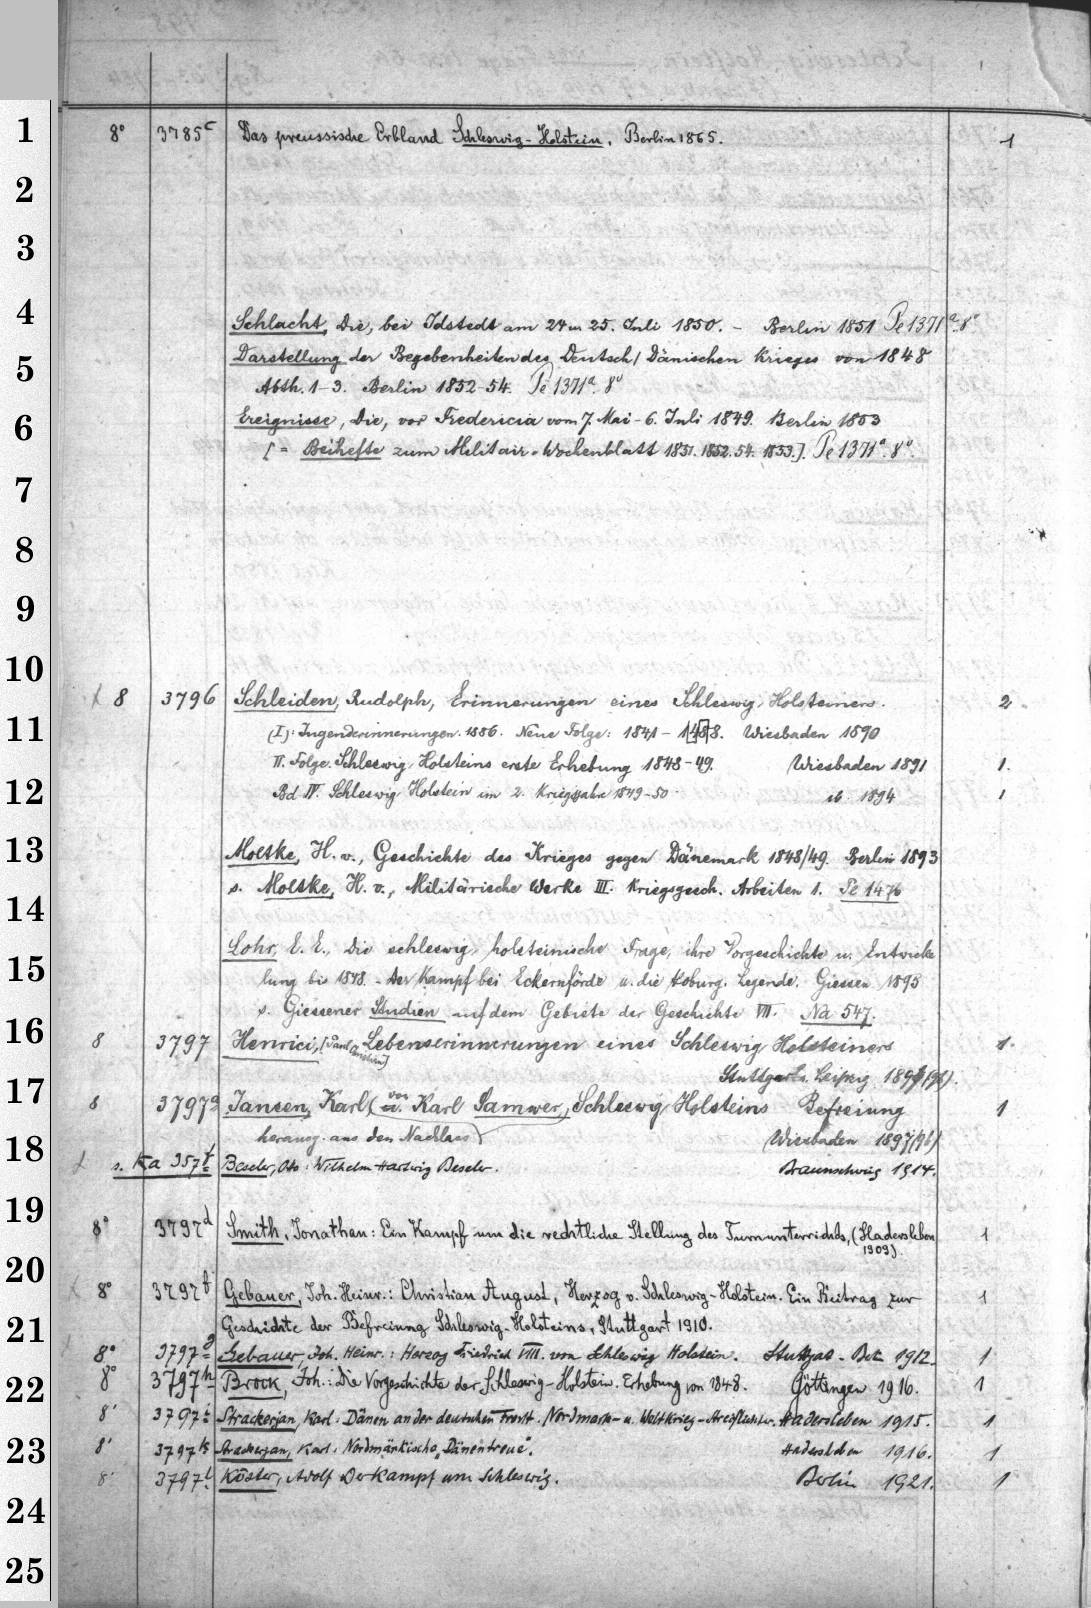 8° 3785c Das preussische Erbland Schleswig-Holstein. Berlin 1865. 1
Schlacht, Die, bei Idstedt am 24 u 25. Juli 1850. – Berlin 1851 Pe 1371a. 8°
Darstellung der Begebenheiten des Deutsch/Dänischen Krieges von 1848
Abth. 1–3. Berlin 1852-54. Pe 1371a. 8°
Ereignisse, Die, vor Fredericia vom 7. Mai – 6. Juli 1849. Berlin 1853
[= Beihefte zum Militair-Wochenblatt 1851. 1852. 54. 1853.]. Pe 1371a. 8°.
8 3796 Schleiden, Rudolph, Erinnerungen eines Schleswig-Holsteiners. 2
(I): Jugenderinnerungen. 1886. Neue Folge: 1841 – 1848. Wiesbaden 1890
III. Folge. Schleswig-Holsteins erste Erhebung 1848-49. Wiesbaden 1891 1.
Bd IV. Schleswig-Holstein im 2. Kriegsjahre 1849-50 ib. 1894 1
Moltke, H. v., Geschichte des Krieges gegen Dänemark 1848/49. Berlin 1893
s. Moltke, H. v., Militärische Werke III. Kriegsgesch. Arbeiten 1. Pe 1476
Lohr, E. E., Die schleswig-holsteinische Frage, ihre Vorgeschichte u. Entwicke
lung bis 1848. – Der Kampf bei Eckernförde u. die Koburg. Legende. Giessen 1895
s. Giessener Studien auf dem Gebiete der Geschichte VIII. Na 547.
8 3797 Henrici, [Paul Christian] Lebenserinnerungen eines Schleswig-Holsteiners 1.
Stuttgart u. Leipzig 1897(96).
8 3797a Jansen, Karl (von u. Karl Samwer), Schleswig-Holsteins Befreiung 1
herausg. aus dem Nachlass) Wiesbaden 1897(96)
s. Ka 357t Beseler, Otto: Wilhelm Hartwig Beseler. Braunschweig 1914.
8° 3797d Smith, Jonathan: Ein Kampf um die rechtliche Stellung des Turnunterrichts, (Hadersleben 1
1909)
8° 3797f Gebauer, Joh. Heinr.: Christian August, Herzog v. Schleswig-Holstein. Ein Beitrag zur 1
Geschichte der Befreiung Schleswig-Holsteins, Stuttgart 1910.
8° 3797g Gebauer, Joh. Heinr.: Herzog Friedrich VIII. von Schleswig-Holstein. Stuttgart-Berlin 1912. 1
8° 3797h Brock, Joh.: Die Vorgeschichte der Schleswig-Holstein. Erhebung von 1848. Göttingen 1916. 1
8° 3797i Strackerjan, Karl: Dänen an der deutschen Front. Nordmark- u. Weltkrieg-Streiflichter. Hadersleben 1915. 1
8° 3797k Strackerjan, Karl: Nordmärkische „Dänentreue“. Hadersleben 1916. 1
8° 3797l Köster, Adolf Der Kampf um Schleswig. Berlin 1921. 1
1
2
3
4
5
6
7
8
9
10
11
12
13
14
15
16
17
18
19
20
21
22
23
24
25